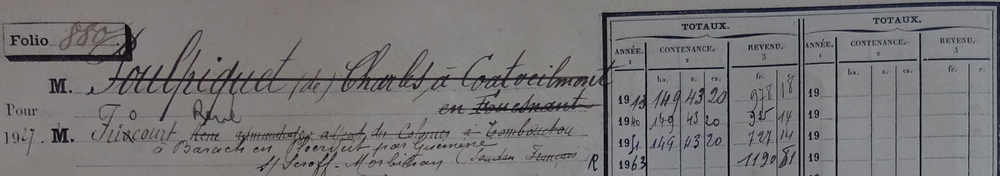 Folio 880
TOTAUX. TOTAUX.
ANNÉE. CONTENANCE. REVENU. ANNÉE. CONTENANCE. REVENU.
1 2 3 1 2 3
ha. a. ca. fr. c. ha. a. ca. fr. c.
M. Poulpiquet (de) Charles, à Coatveilmout
en Fouesnant
1913 149 43 20 978 18 19
Pour René
1940 149 43 20 925 14 19
1927 M. Friscourt René administrateur adjoint des Colonies à Tombouctou
1951 149 43 20 727 14 19
à Barach en Ploerdut par Guémené
s/ Scorff. Morbihan (Soudan Français R
1963 1190 81 19